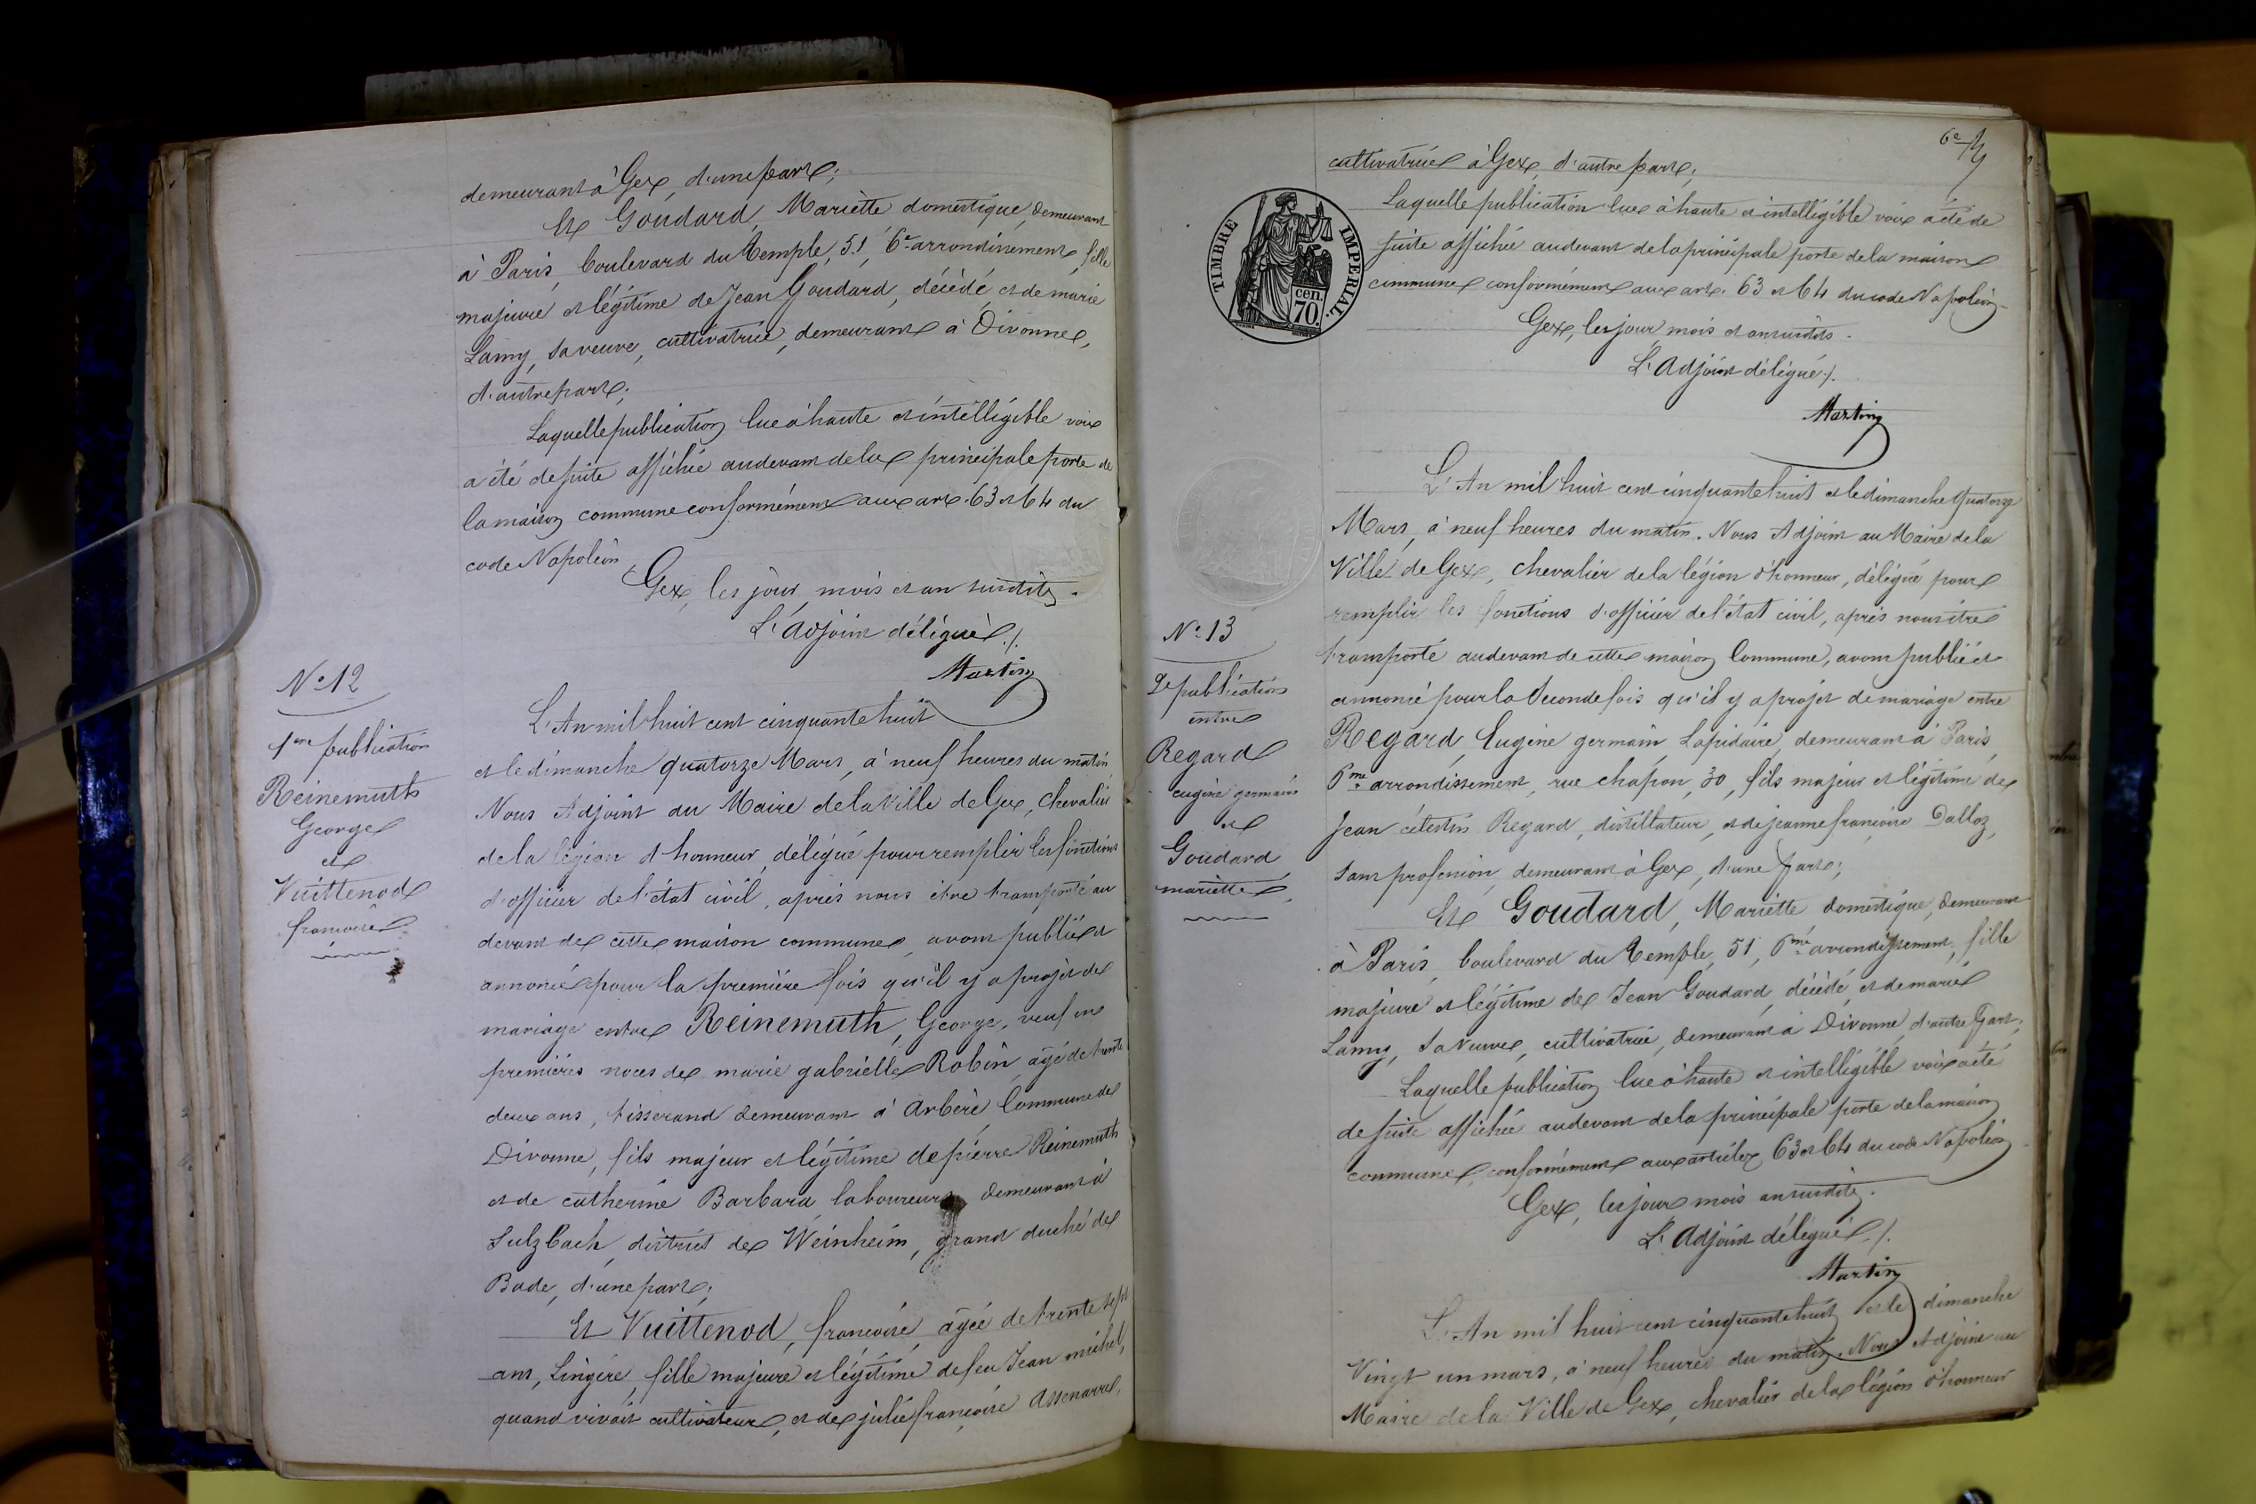 demeurant à Gex, d'une part;
Et Goudard, Mariette domestique, demeurant
à Paris, boulevard du Temple, 51, 6e arrondissement, fille
majeure et légitime de Jean Goudard, décédé, et de marie
Lamy, sa veuve, cultivatrice, demeurant à Divonne,
d'autre part;
Laquelle publication lue à haute et intelligible voix
a été de suite affichée audevant de la principale porte de
la maison commune conformément aux art. 63 et 64 du
code Napoléon.
Gex, les jour, mois et an susdits.
L'adjoint délégué ./.
Martin
N° 12
1ere publication
Reinemuth
George
et
Vuittenod
francoise
L'An mil huit cent cinquante huit
et le dimanche quatorze Mars, à neuf heures du matin
Nous Adjoint au Maire de la Ville de Gex, chevalier
de la légion d'honneur, délégué pour remplir les fonctions
d'officier de l'état civil, après nous être transporté au
devant de cette maison commune, avons publié et
annoncé pour la première fois qu'il y a projet de
mariage entre Reinemuth, George, veuf en
premières noces de marie gabrielle Robin, âgé de trente
deux ans, tisserand demeurant à Arbère, Commune de
Divonne, fils majeur et légitime de pierre Reinemuth
et de catherine Barbara, laboureurs, demeurant à
Sulzbach, district de Weinheim, grand duché de
Bade, d'une part;
Et Vuittenod, francoise, âgée de trente sept
ans, Lingère, fille majeure et légitime de feu Jean michel,
quand vivait cultivateur, et de julie françoise Assenarre,
6e
cultivatrice à Gex, d'autre part;
TIMBRE IMPERIAL.
70 cen.
Laquelle publication lue à haute et intelligible voix a été de
suite affichée audevant de la principale porte de la maison
commune conformément aux art. 63 et 64 du code Napoléon.
Gex, les jour, mois et an susdits.
L'Adjoint délégué ./.
Martin
N° 13
2e publication
entre
Regard
eugène germain
et
Goudard
mariette
L'An mil huit cent cinquante huit et le dimanche Quatorze
Mars, à neuf heures du matin. Nous Adjoint au Maire de la
Ville de Gex, chevalier de la légion d'honneur, délégué pour
remplir les fonctions d'officier de l'état civil, après nous être
transporté audevant de cette maison Commune, avons publié et
annoncé pour la Seconde fois qu'il y a projet de mariage entre
Regard, Eugène germain Lapidaire, demeurant à Paris,
6me arrondissement, rue chapon, 30, fils majeur et légitime de
Jean célestin Regard, distillateur, et de jeanne françoise Dalloz,
sans profession, demeurant à Gex, d'une part;
Et Goudard, Mariette domestique, demeurant
à Paris, boulevard du Temple, 51, 6me arrondissement, fille
majeure et légitime de Jean Goudard, décédé, et de marie
Lamy, sa veuve, cultivatrice, demeurant à Divonne, d'autre part;
Laquelle publication lue à haute et intelligible voix a été
de suite affichée audevant de la principale porte de la maison
commune, conformément aux articles 63 et 64 du code Napoléon
Gex, les jour mois an susdits.
L'Adjoint délégué ./.
Martin
L'An mil huit cent cinquante huit et le dimanche
Vingt un mars, à neuf heures du matin. Nous Adjoint au
Maire de la Ville de Gex, chevalier de la légion d'honneur